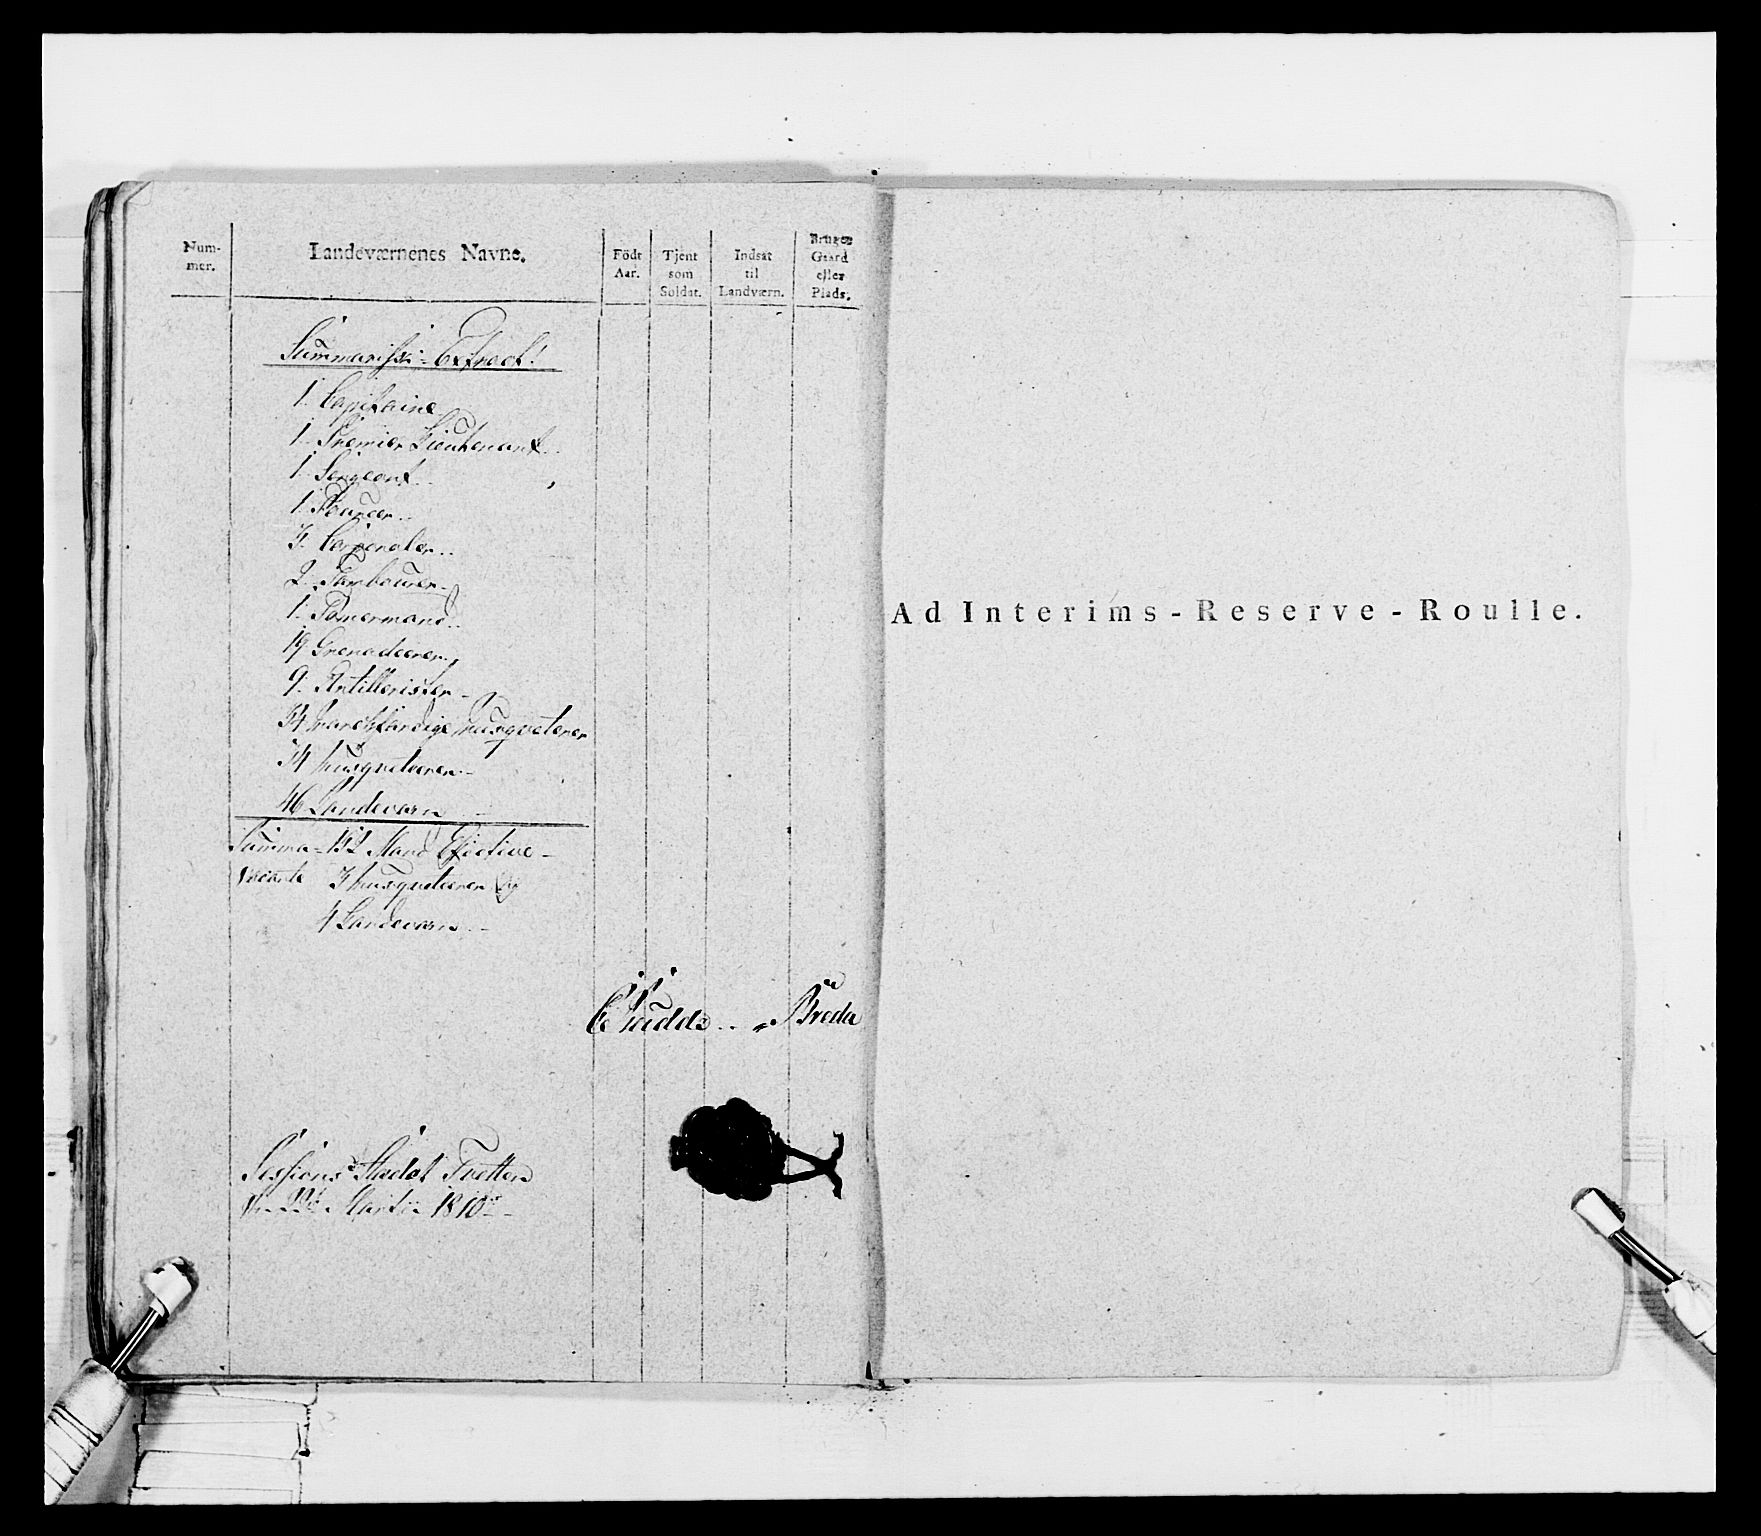 Num-
mer.
Landeværnenes Navne.
Födt
Aar.
Tjent
som
Soldat.
Indsat
til
Landværn.
Bruger
Gaard
eller
Plads.
Summarisk-Extract!
1. Capitaine
1. Premier Lieutenant
1. Sergeant
1. Fourer
3. Corporaler
2. Tambourer
1. Tømermand
19 Grenadeerer
9. Artillerister
34 Musqueterer
34 Musqueterer
46 Landeværn
Summa - 152 Mand Efective
Vacante 3 Musqueterer og
4 Landeværn
Breda
Sessions Stædet Tretten
Martii 1810
Ad Interims-Reserve-Roulle.